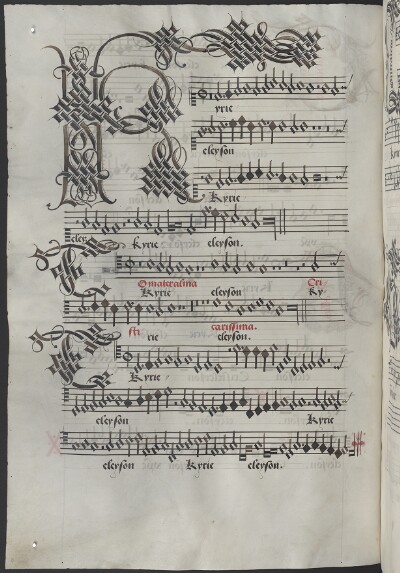 K
yrie
eleyson
Kyrie
eley Kyrie eleyson.
O mater alma Cri
Kyrie eleyson Ky
sti carissima.
rie eleyson.
Kyrie
eleyson Kyrie
eleyson Kyrie eleyson.